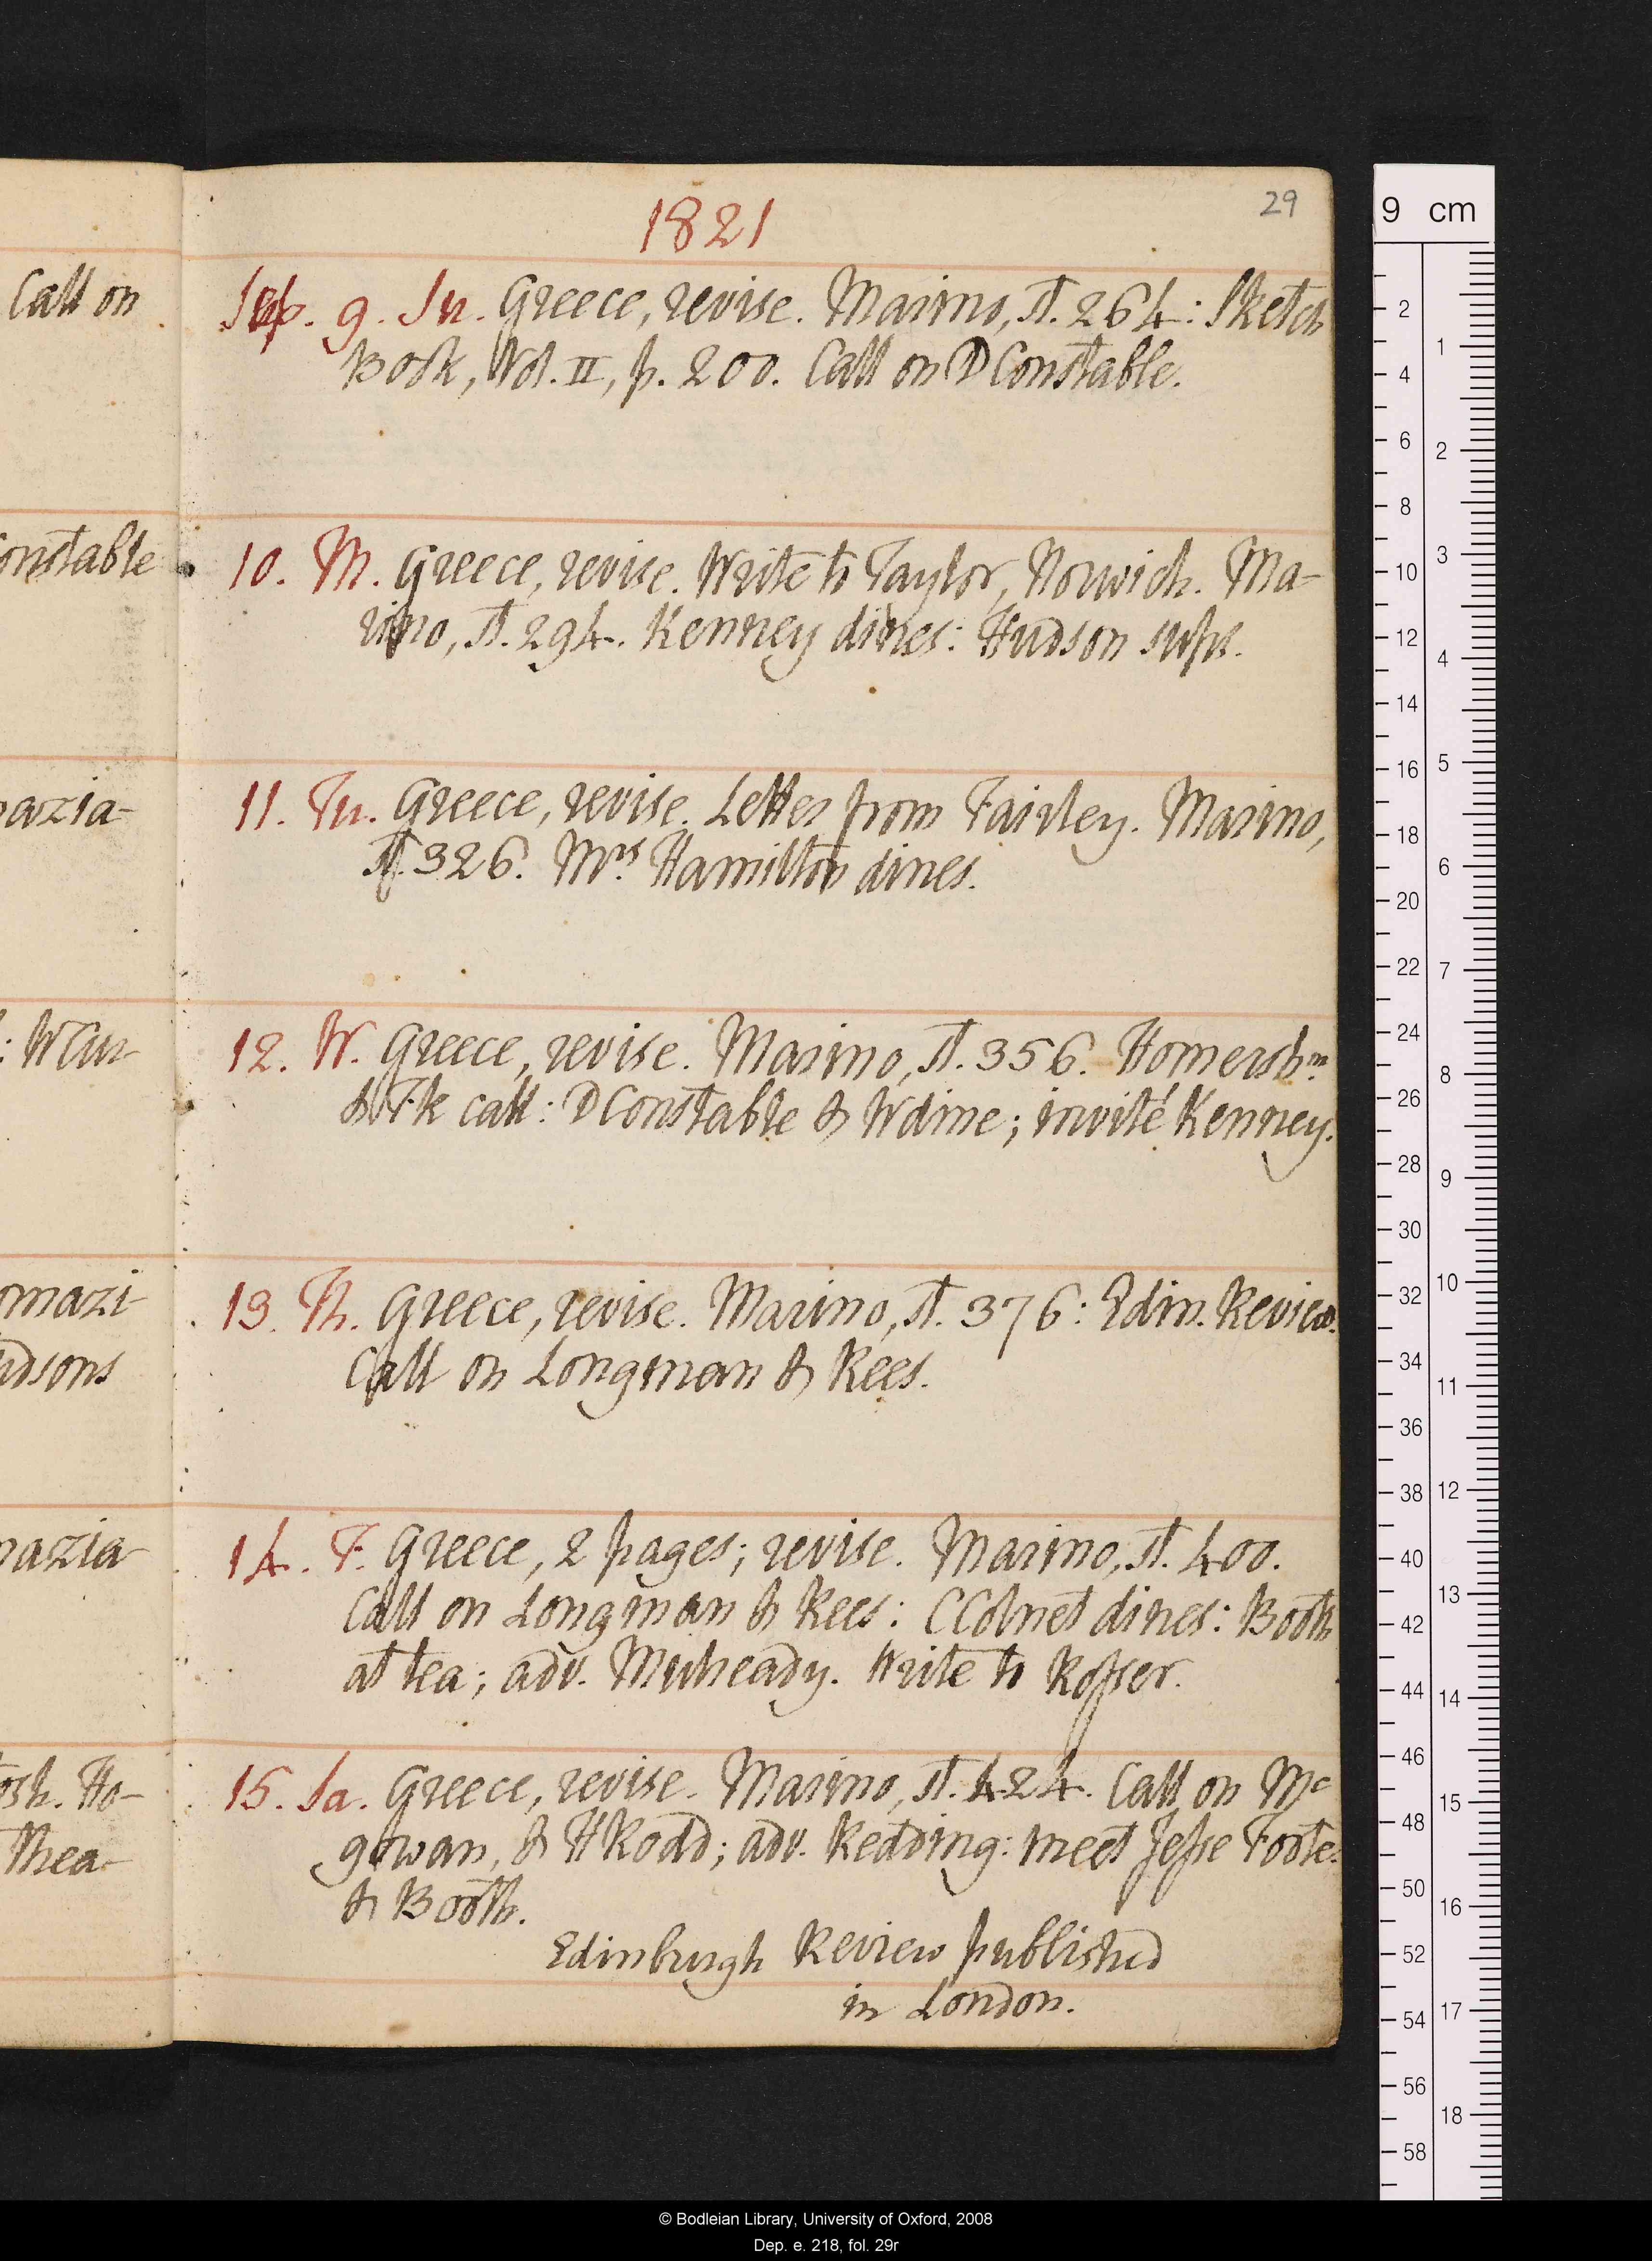 29
1821
Call on
Sep. 9. Su. Greece, revise. Marino, st. 264: Sketch
Book, Vol. II, p. 200. Call on D Constable.
onstable
10. M. Greece, revise. Write to Taylor, Norwich. Ma-
rino, st. 294. Kenney dines: Hudson sups.
azia-
11. Tu. Greece, revise. Letter from Fairley. Marino,
st. 326. Mrs Hamilton dines.
: W Cur-
12. W. Greece, revise. Marino, st. 356. Homershm
& Fk call: D Constable & W dine; invité Kenney.
omazi-
13. Th. Greece, revise. Marino, st. 376: Edin. Review.
udsons
Call on Longman & Rees.
azia-
14. F. Greece, 2 pages; revise. Marino, st. 400.
Call on Longman & Rees: C Colnet dines: Booth
at tea; adv. Mulready. Write to Rosser.
osh. Ho-
15. Sa. Greece, revise. Marino, st. 424. Call on Mc
Thea-
gowan, & H Rodd; adv. Redding: meet Jesse Foote
& Booth.
Edinburgh Review published
in London.
9 cm
2
4
6
8
10
12
14
16
18
20
22
24
26
28
30
32
34
36
38
40
42
44
46
48
50
52
54
56
58
1
2
3
4
5
6
7
8
9
10
11
12
13
14
15
16
17
18
© Bodleian Library, University of Oxford, 2008
Dep. e. 218, fol. 29r